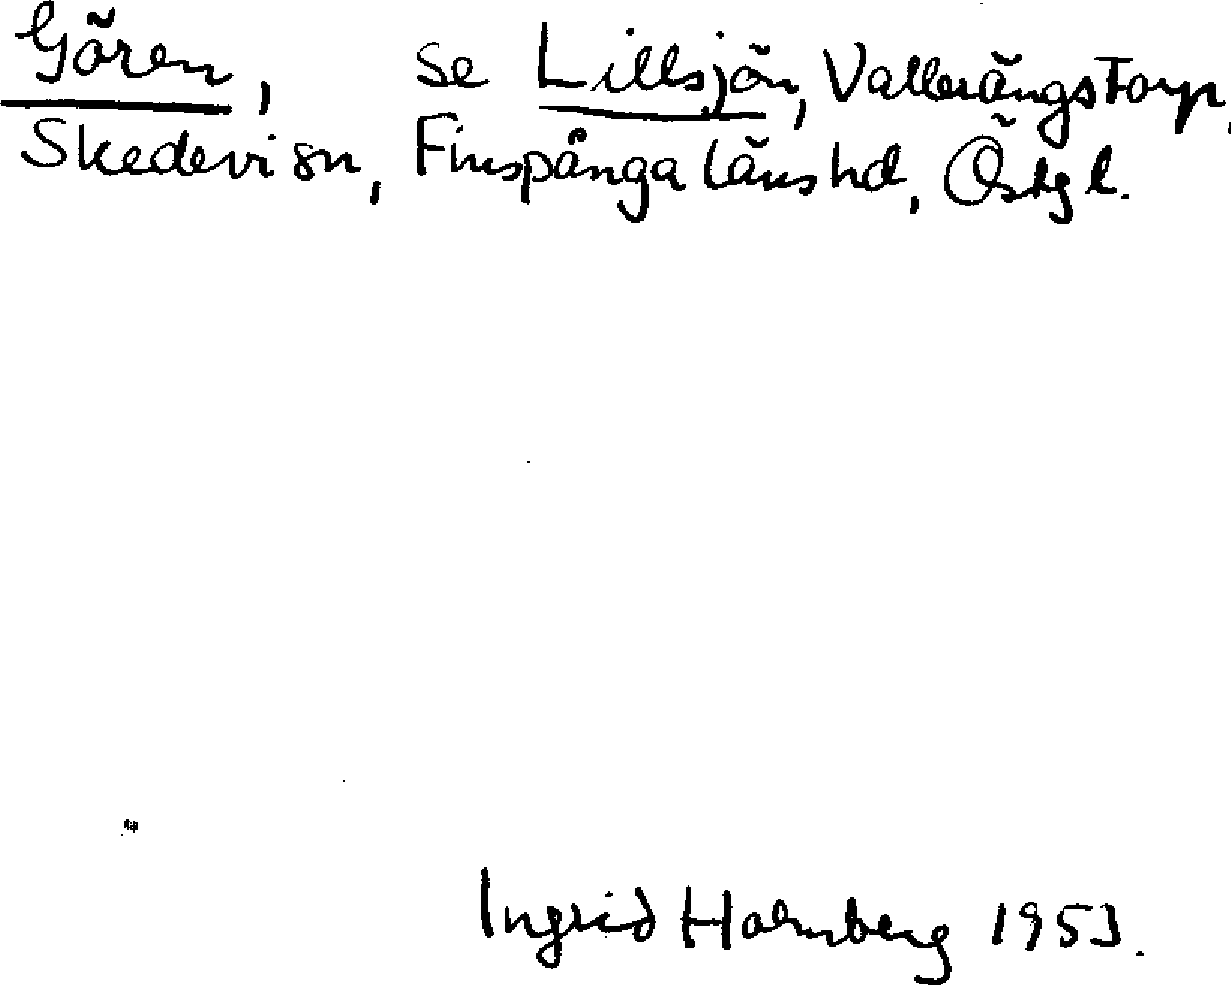 Gören, se Lillsjön, Vallerängstorp,
Skedevi sn, Finspånga läns hd, Östgl.
Ingrid Holmberg 1953.